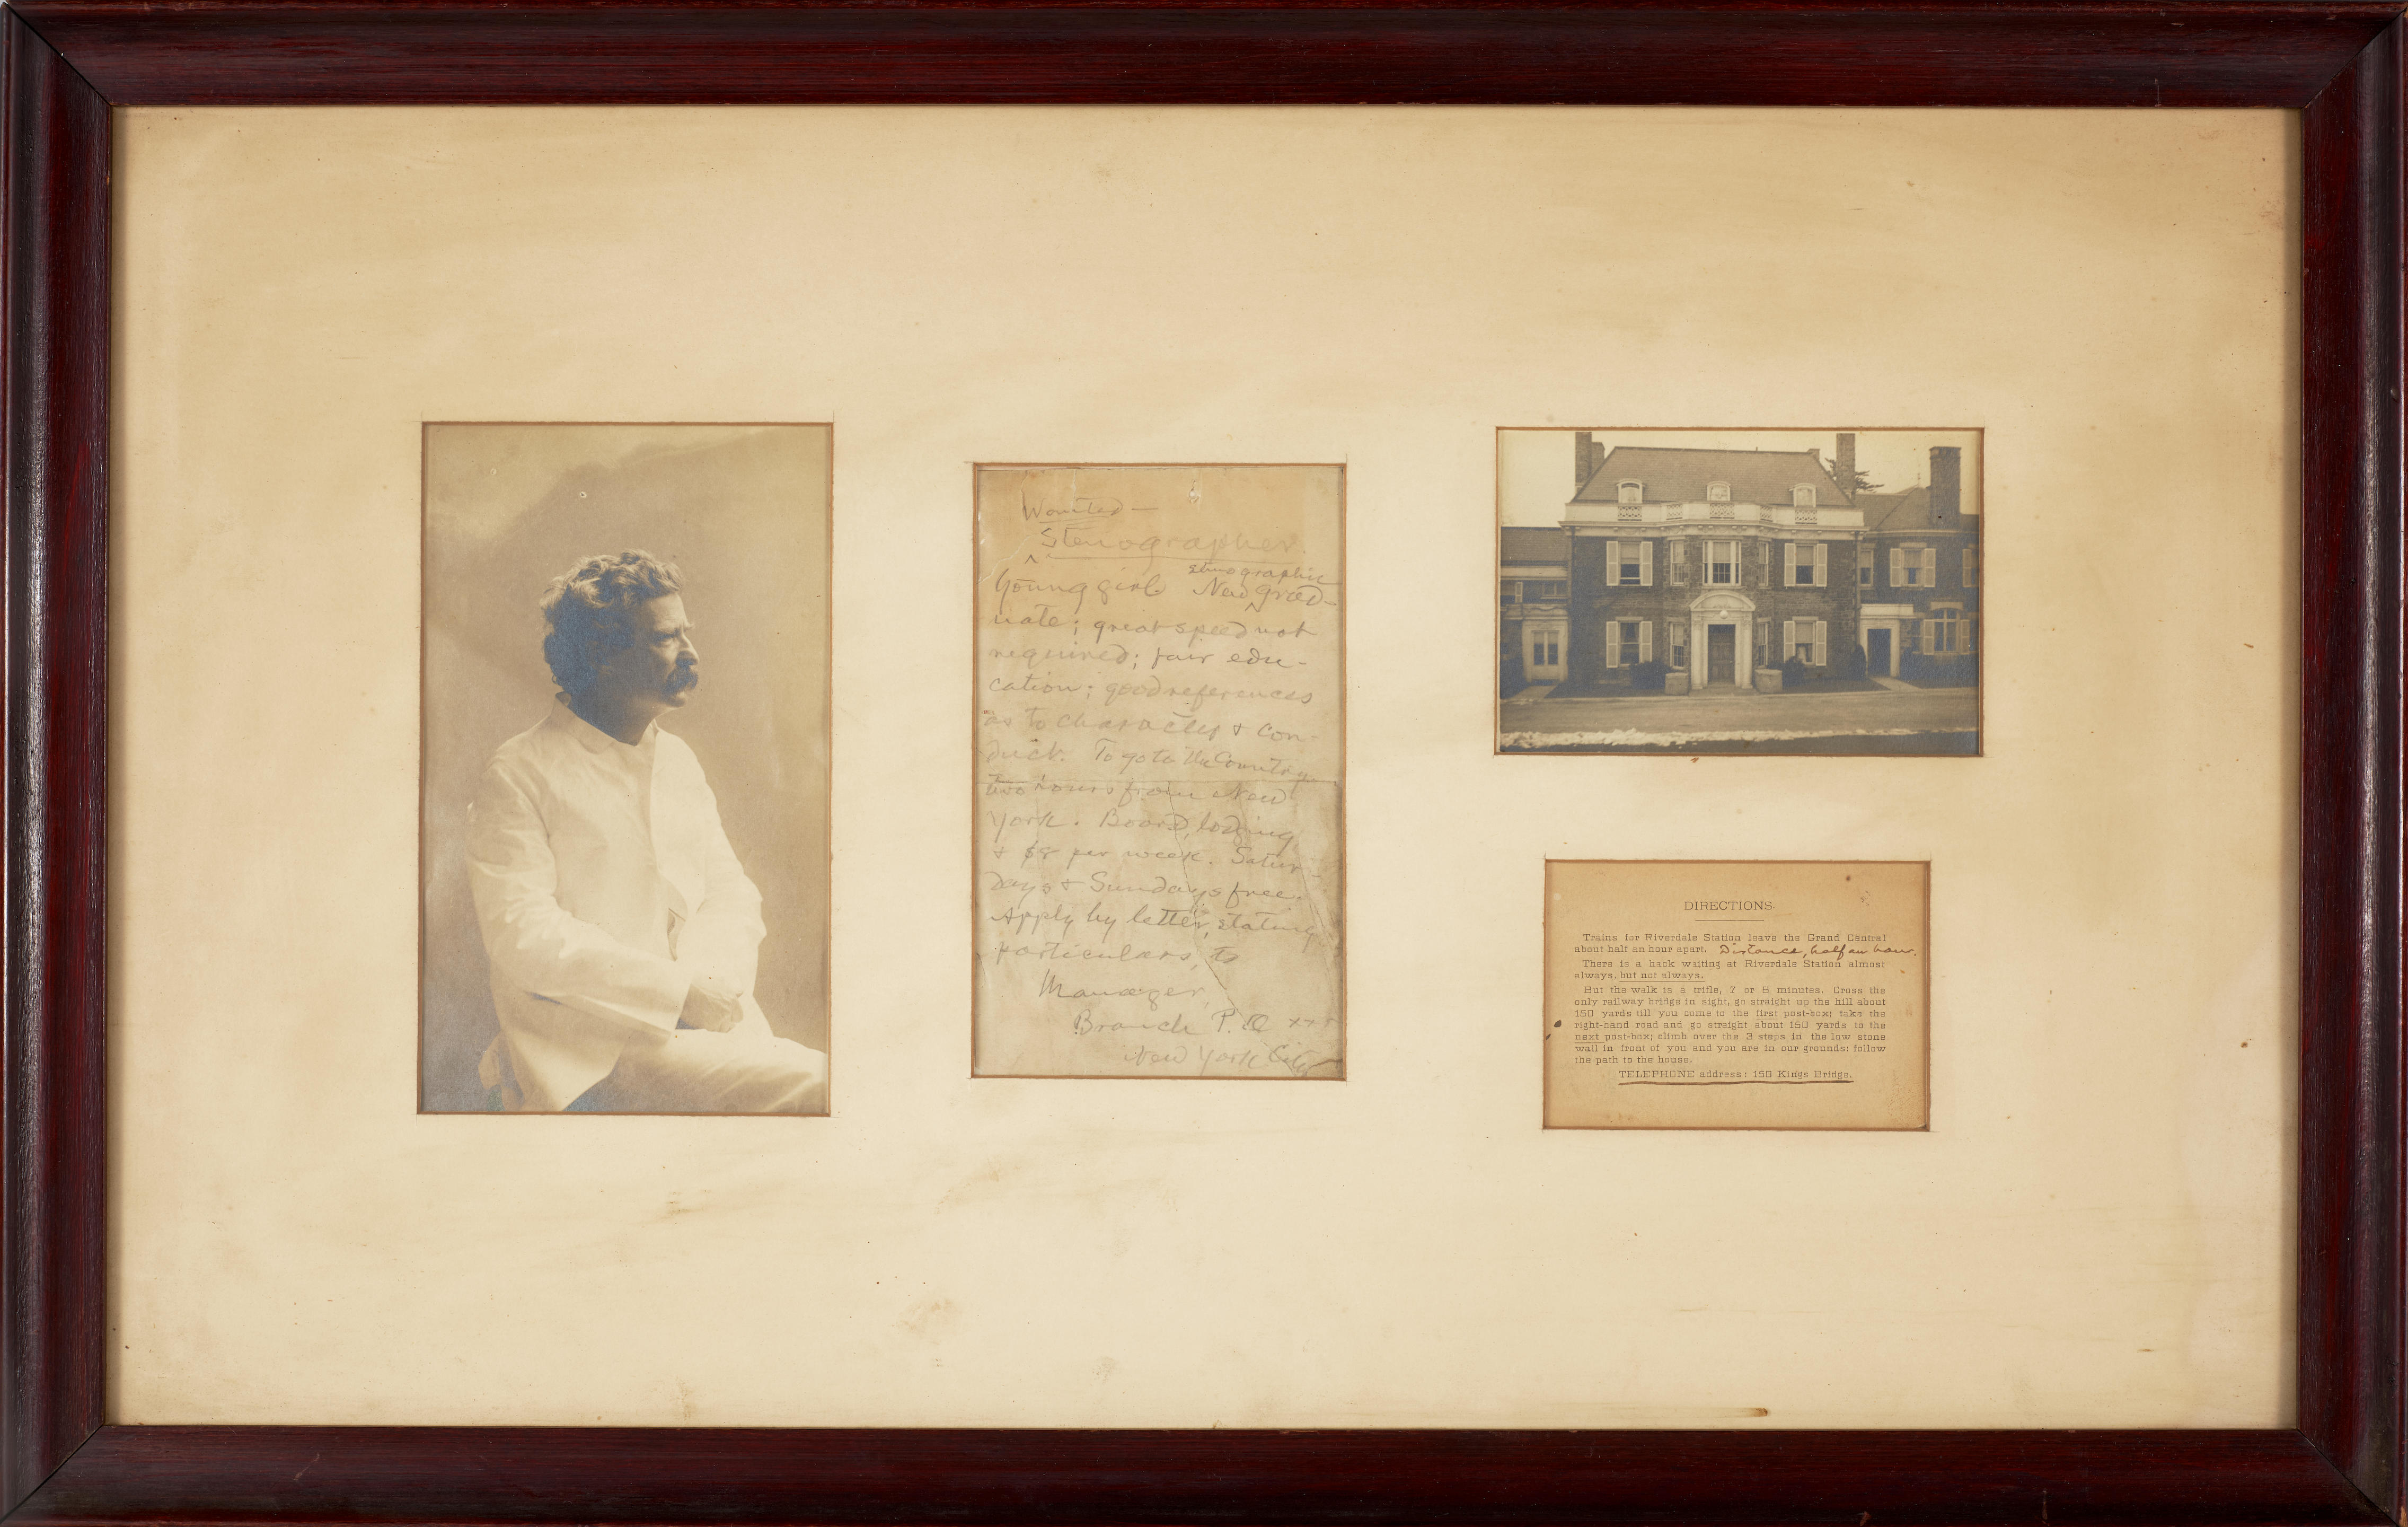 Wanted—
Stenographer.
^
stenographic
Young girl. New grad-
^
uate; great speed not
required; fair edu-
cation; good references
as to character & con-
duct. To go to the Country
two hours from New
York. Board, lodging
& $8 per week. Satur-
days & Sundays free.
Apply by letter, stating
particulars, to
Manager,
Branch P. O xxx
New York City
DIRECTIONS.
Trains for Riverdale Station leave the Grand Central
about half an hour apart. Distance, half an hour.
There is a hack waiting at Riverdale Station almost
always, but not always.
But the walk is a trifle, 7 or 8 minutes. Cross the
only railway bridge in sight, go straight up the hill about
150 yards till you come to the first post-box; take the
right-hand road and go straight about 150 yards to the
next post-box; climb over the 3 steps in the low stone
wall in front of you and you are in our grounds; follow
the path to the house.
TELEPHONE address: 150 Kings Bridge.